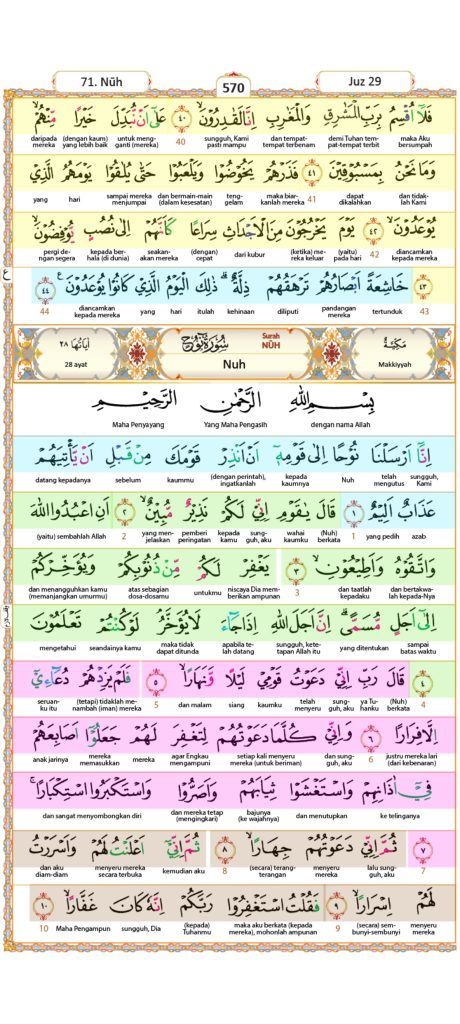 71. Nūh 570 Juz 29
فَلَآ اُقْسِمُ بِرَبِّ الْمَشٰرِقِ وَالْمَغٰرِبِ اِنَّا لَقٰدِرُوْنَۙ ٤٠ عَلٰٓى اَنْ نُّبَدِّلَ خَيْرًا مِّنْهُمْۙ
maka Aku bersumpah demi Tuhan tempat-tempat terbit dan tempat-tempat terbenam sungguh, Kami pasti mampu 40 untuk mengganti (mereka) (dengan kaum) yang lebih baik daripada mereka
وَمَا نَحْنُ بِمَسْبُوْقِيْنَ ٤١ فَذَرْهُمْ يَخُوْضُوْا وَيَلْعَبُوْا حَتّٰى يُلٰقُوْا يَوْمَهُمُ الَّذِيْ
dan tidaklah Kami dapat dikalahkan 41 maka biarkanlah mereka tenggelam dan bermain-main (dalam kesesatan) sampai mereka menjumpai hari yang
يُوْعَدُوْنَۙ ٤٢ يَوْمَ يَخْرُجُوْنَ مِنَ الْاَجْدَاثِ سِرَاعًا كَاَنَّهُمْ اِلٰى نُصُبٍ يُّوْفِضُوْنَۙ
diancamkan kepada mereka 42 (yaitu) pada hari (ketika) mereka keluar dari kubur (dengan) cepat seakan-akan mereka kepada berhala (di dunia) pergi dengan segera
ع
٤٣ خَاشِعَةً اَبْصَارُهُمْ تَرْهَقُهُمْ ذِلَّةٌ ۗذٰلِكَ الْيَوْمُ الَّذِيْ كَانُوْا يُوْعَدُوْنَ ٤٤
43 tertunduk pandangan mereka diliputi kehinaan itulah hari yang diancamkan kepada mereka 44
مَكِّيَّة سُوْرَةُ نُوْح Surah NŪH اٰيَاتُهَا ٢٨
Makkiyyah Nuh 28 ayat
بِسْمِ اللّٰهِ الرَّحْمٰنِ الرَّحِيْمِ
dengan nama Allah Yang Maha Pengasih Maha Penyayang
اِنَّآ اَرْسَلْنَا نُوْحًا اِلٰى قَوْمِهٖٓ اَنْ اَنْذِرْ قَوْمَكَ مِنْ قَبْلِ اَنْ يَّأْتِيَهُمْ
sungguh, Kami telah mengutus Nuh kepada kaumnya (dengan perintah), ingatkanlah kaummu sebelum datang kepadanya
عَذَابٌ اَلِيْمٌ ١ قَالَ يٰقَوْمِ اِنِّيْ لَكُمْ نَذِيْرٌ مُّبِيْنٌۙ ٢ اَنِ اعْبُدُوا اللّٰهَ
azab yang pedih 1 (Nuh) berkata wahai kaumku sungguh, aku kepada kamu pemberi peringatan yang menjelaskan 2 (yaitu) sembahlah Allah
وَاتَّقُوْهُ وَاَطِيْعُوْنِۙ ٣ يَغْفِرْ لَكُمْ مِّنْ ذُنُوْبِكُمْ وَيُؤَخِّرْكُمْ
dan bertakwalah kepada-Nya dan taatlah kepadaku 3 niscaya Dia memberikan ampunan untukmu atas sebagian dosa-dosamu dan menangguhkan kamu (memanjangkan umurmu)
اِلٰٓى اَجَلٍ مُّسَمًّىۗ اِنَّ اَجَلَ اللّٰهِ اِذَا جَاۤءَ لَا يُؤَخَّرُۘ لَوْ كُنْتُمْ تَعْلَمُوْنَ
sampai batas waktu yang ditentukan sungguh, ketetapan Allah itu apabila telah datang maka tidak dapat ditunda seandainya kamu mengetahui
٤ قَالَ رَبِّ اِنِّيْ دَعَوْتُ قَوْمِيْ لَيْلًا وَّنَهَارًاۙ ٥ فَلَمْ يَزِدْهُمْ دُعَاۤءِيْٓ
4 (Nuh) berkata ya Tuhanku sungguh, aku telah menyeru kaumku siang dan malam 5 (tetapi) tidaklah menambah (iman) mereka seruanku itu
اِلَّا فِرَارًا ٦ وَاِنِّيْ كُلَّمَا دَعَوْتُهُمْ لِتَغْفِرَ لَهُمْ جَعَلُوْٓا اَصَابِعَهُمْ
justru mereka lari (dari kebenaran) 6 dan sungguh, aku setiap kali menyeru mereka (untuk beriman) agar Engkau mengampuni mereka mereka memasukkan anak jarinya
فِيْٓ اٰذَانِهِمْ وَاسْتَغْشَوْا ثِيَابَهُمْ وَاَصَرُّوْا وَاسْتَكْبَرُوا اسْتِكْبَارًاۚ
ke telinganya dan menutupkan bajunya (ke wajahnya) dan mereka tetap (mengingkari) dan sangat menyombongkan diri
٧ ثُمَّ اِنِّيْ دَعَوْتُهُمْ جِهَارًاۙ ٨ ثُمَّ اِنِّيْٓ اَعْلَنْتُ لَهُمْ وَاَسْرَرْتُ
7 lalu sungguh, aku menyeru mereka (secara) terang-terangan 8 kemudian aku menyeru mereka secara terbuka dan aku diam-diam
لَهُمْ اِسْرَارًاۙ ٩ فَقُلْتُ اسْتَغْفِرُوْا رَبَّكُمْ اِنَّهٗ كَانَ غَفَّارًاۙ ١٠
menyeru mereka (secara) sembunyi-sembunyi 9 maka aku berkata (kepada mereka), mohonlah ampunan (kepada) Tuhanmu sungguh, Dia Maha Pengampun 10